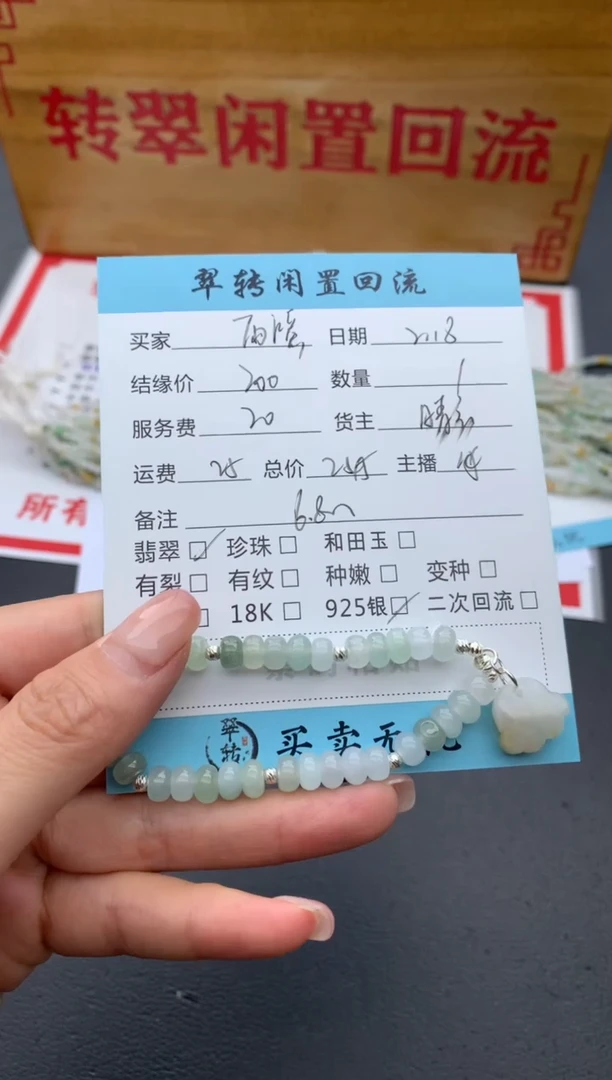 转翠闲置回流
翠转闲置回流
买家 日期 2.18
结缘价 200 数量 1
服务费 20 货主
运费 25 总价 245 主播
备注 6.8m
翡翠 珍珠 和田玉
有裂 有纹 种嫩 变种
18K 925银 二次回流
翠转 买卖无
所有